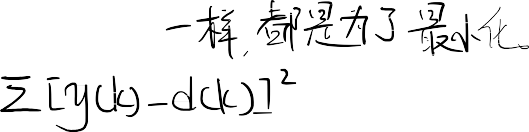 一样，都是为了最小化。
Σ[y(k)-d(k)]²